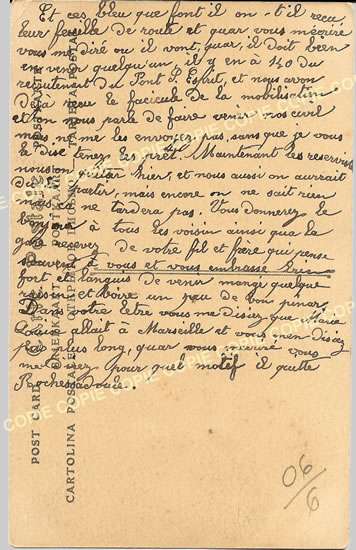 Et ces bleu que font il on t-il recu
leur feuille de route et quar vous m'ecrire
vous me diré ou il vont, quar il doit ben
en venir quelqu'un, il y en à 140 du
recrutement du Pont S. Esprit, et nous avon
déjà recu le facicule de la mobilisation
et on nous parle de faire venir nos civil
mais ne me les envoyez pas, sans que je vous
le dise tenez les pret. Maintenant les reserviste
nous on quitar hier, et nous aussi on aurrait
dut partir, mais encore on ne sait rien
mais ca ne tardera pas. Vous donnerez le
bonjour à tous les voisin ainsi que la
gare recevez de votre fil et frère qui pense
souvent à vous et vous embrasse bien
fort et languis de venir mangé quelque
raisin et boire un peu de bon pinar,
Dans votre letre vous me disiez que Marie
Louise allait à Marseille et vous n'en disez
pas plus long, quar vous m'ecrire vous
me direz pour quel motif il quitte
Rochessadoule.
POST CARD
CARTOLINA POSTALE
COPIE COPIE COPIE COPIE
06/6